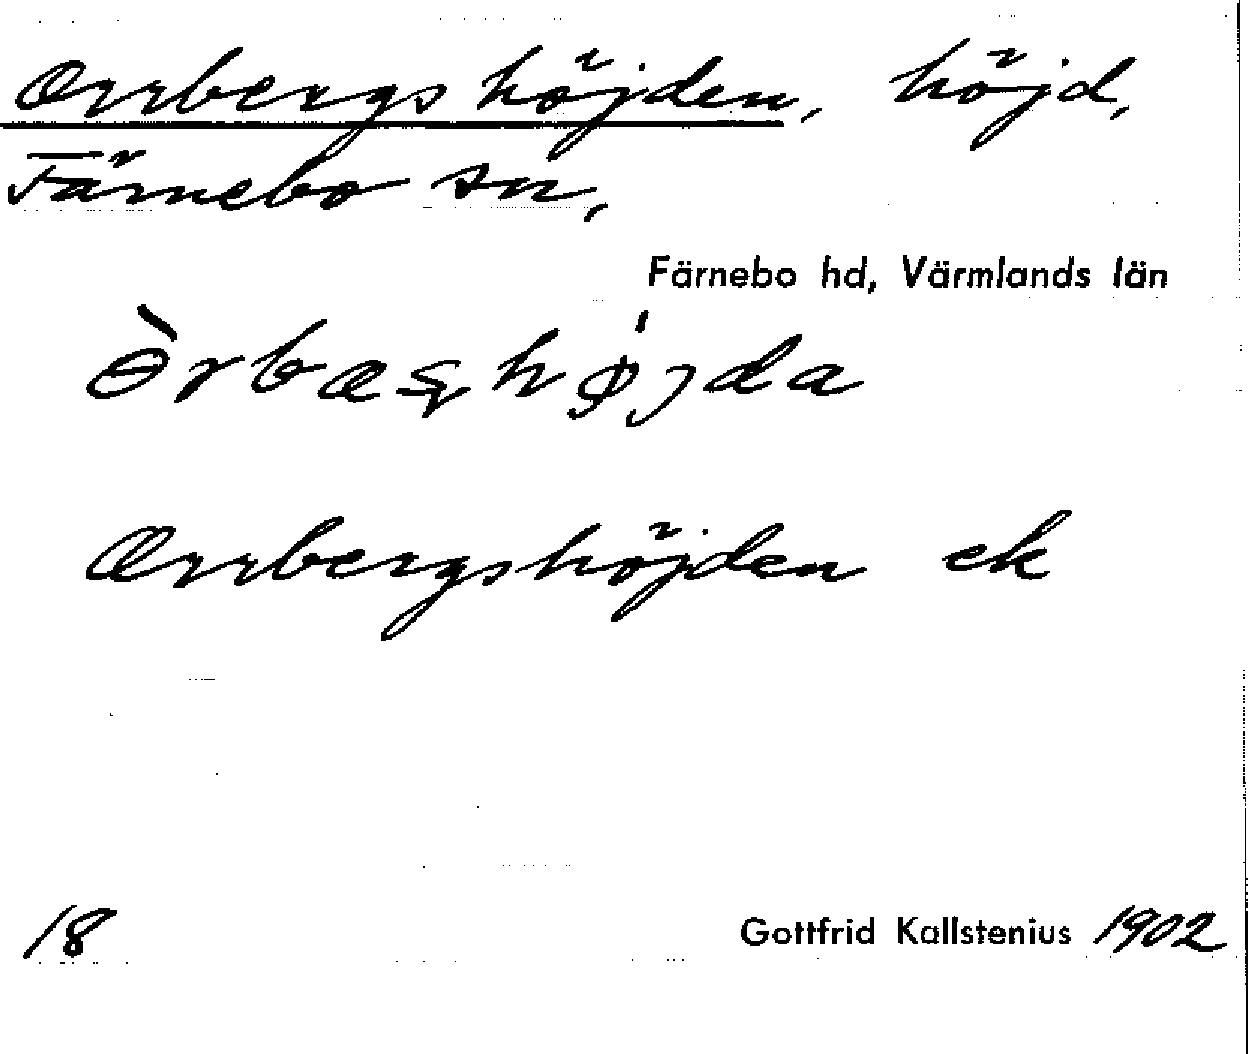 Orrbergshöjden, höjd,
Färnebo sn,
Färnebo hd, Värmlands län
Orrbergshöjden ek
18
Gottfrid Kallstenius 1902